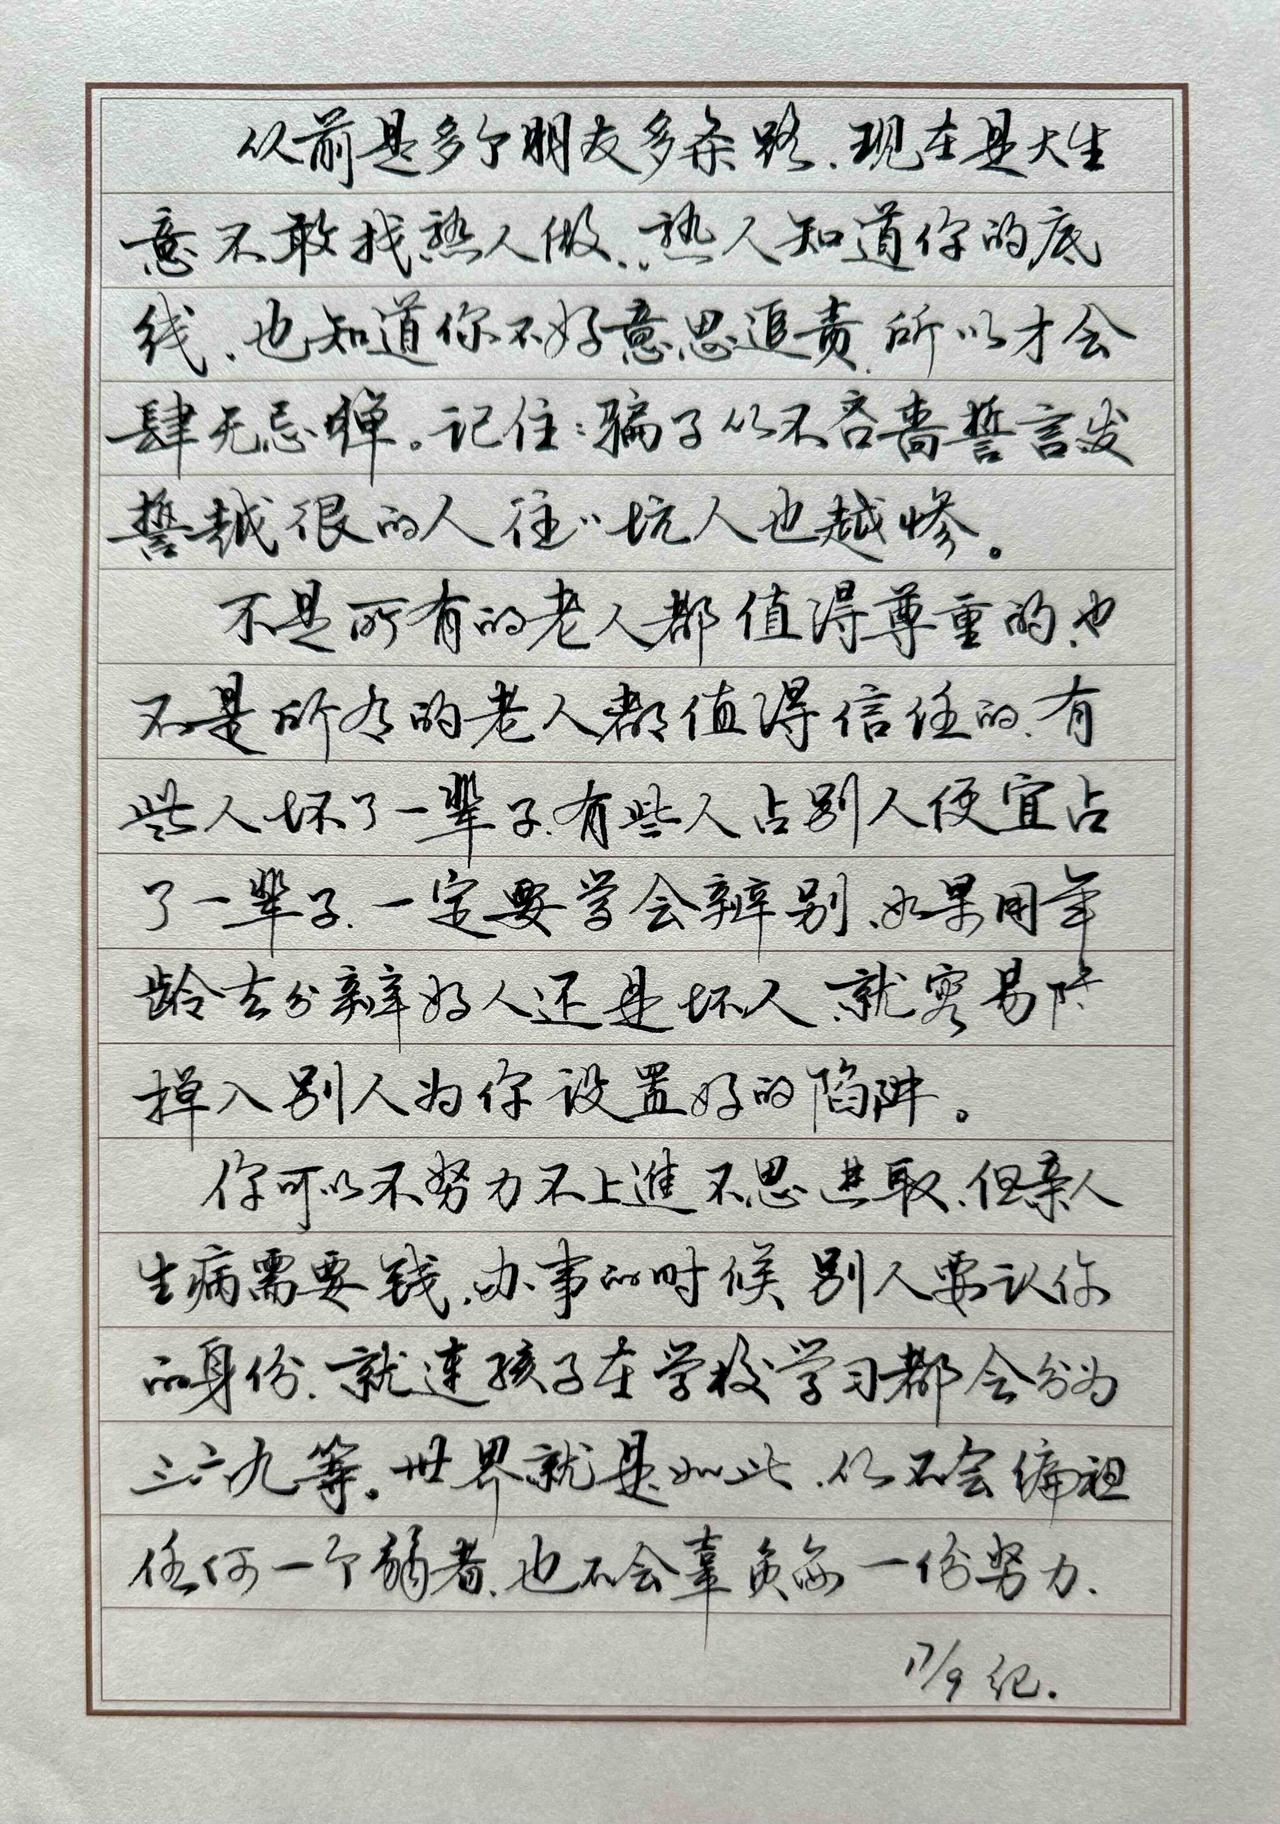 从前是多个朋友多条路、现在是大生
意不敢找熟人做、熟人知道你的底
线、也知道你不好意思追责、所以才会
肆无忌惮。记住：骗子从不吝啬誓言发
誓越很的人往〃坑人也越惨。
不是所有的老人都值得尊重的、也
不是所有的老人都值得信任的、有
些人坏了一辈子、有些人占别人便宜占
了一辈子、一定要学会辨别、如果用年
龄去分辨好人还是坏人、就容易
掉入别人为你设置好的陷阱。
你可以不努力不上進不思进取、但亲人
生病需要钱、办事的时候别人要认你
的身份、就连孩子在学校学习都会分为
三六九等。世界就是如此、从不会偏袒
任何一个弱者、也不会辜负每一份努力、
17/9 纪.